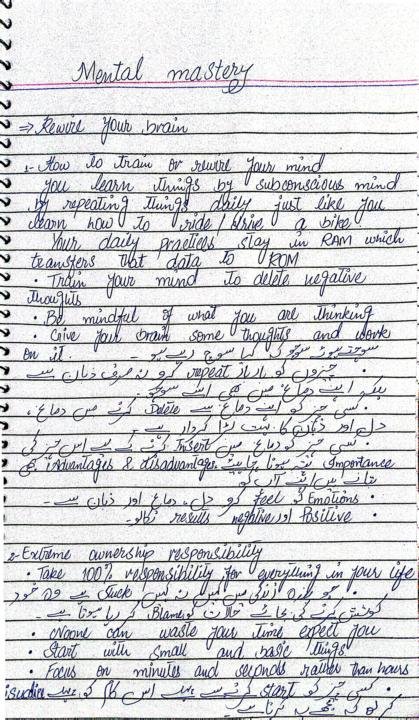 Mental mastery
⇒ Rewire your brain
1- How to train or rewire your mind
you learn things by subconscious mind
by repeating things daily just like you
learn how to ride / drive a bike.
Your daily practices stay in RAM which
transfers that data to ROM
• Train your mind to delete negative
thoughts
• Be mindful of what you are thinking
• Give your brain some thoughts and work
on it.
• چیزوں کو بار بار repeat کرو نہ صرف زبان سے
بلکہ اپنے دماغ میں بھی اسے سوچو۔
• کسی چیز کو اپنے دماغ سے Delete کرنے میں دماغ،
دل اور زبان کا بہت بڑا کردار ہے۔
• کسی چیز کو دماغ میں Insert کرنے کے لیے اس چیز کی
Importance, Advantages & disadvantages
• Emotions کو Feel کرو دل، دماغ اور زبان سے۔
• Positive اور negative results نکالو۔
2- Extreme ownership responsibility
• Take 100% responsibility for everything in your life
• جو بندہ زندگی میں کہیں نہ کہیں stuck ہے وہ خود
کوشش کرنے کی بجائے حالات کو Blame کر رہا ہوتا ہے۔
• Noone can waste your time expect you
• Start with small and basic things
• Focus on minutes and seconds rather than hours
• کسی چیز کو start کرنے سے پہلے اس کام کو